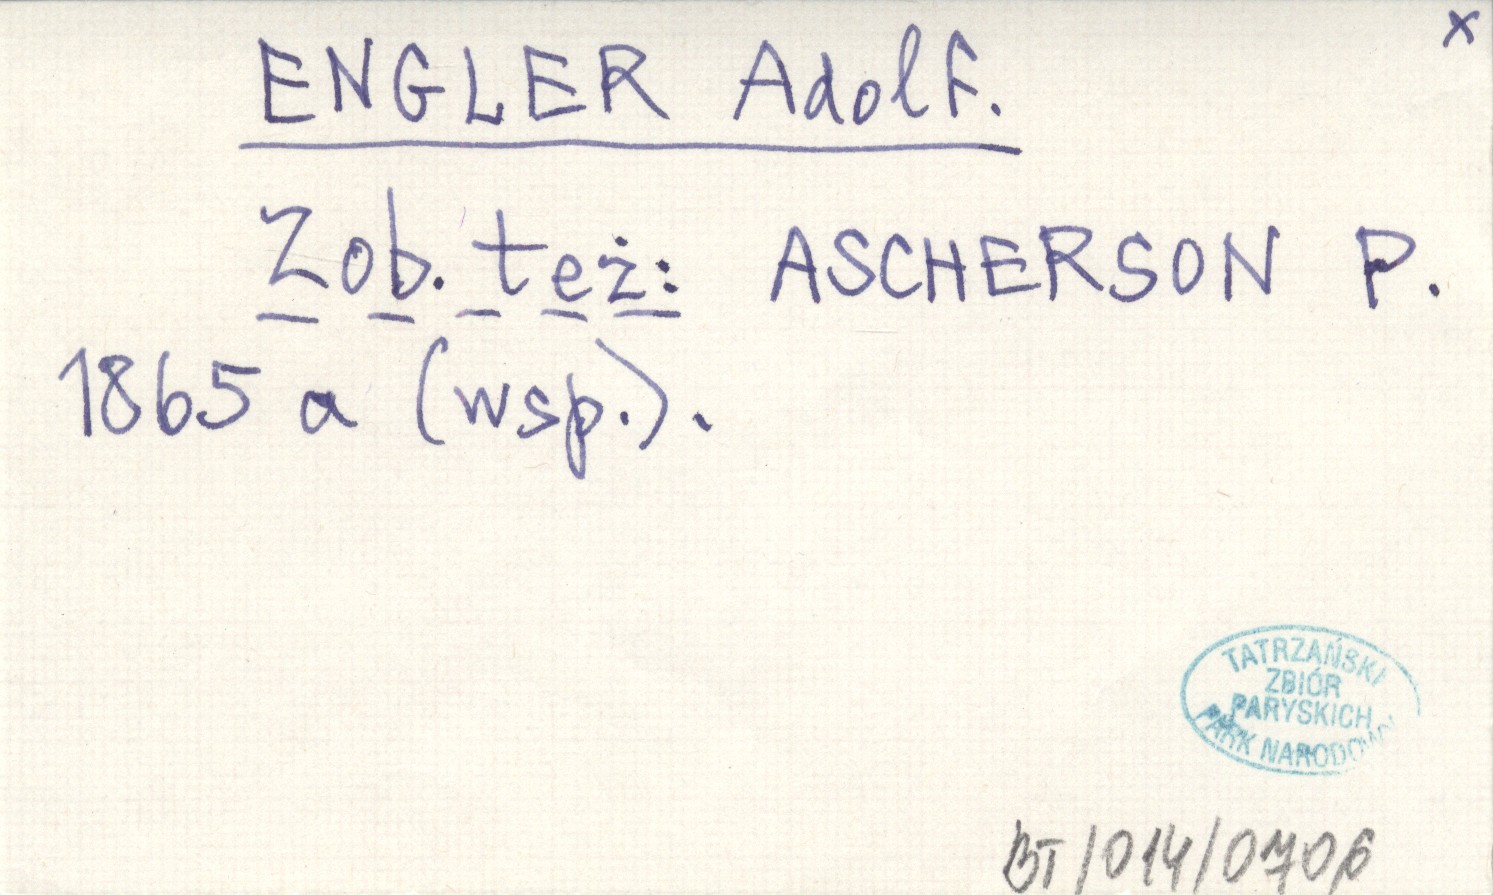 x
ENGLER Adolf.
Zob. też: ASCHERSON P.
1865 a (wsp.).
TATRZAŃSKI
ZBIÓR
PARYSKICH
PARK NARODOWY
BT/014/0706